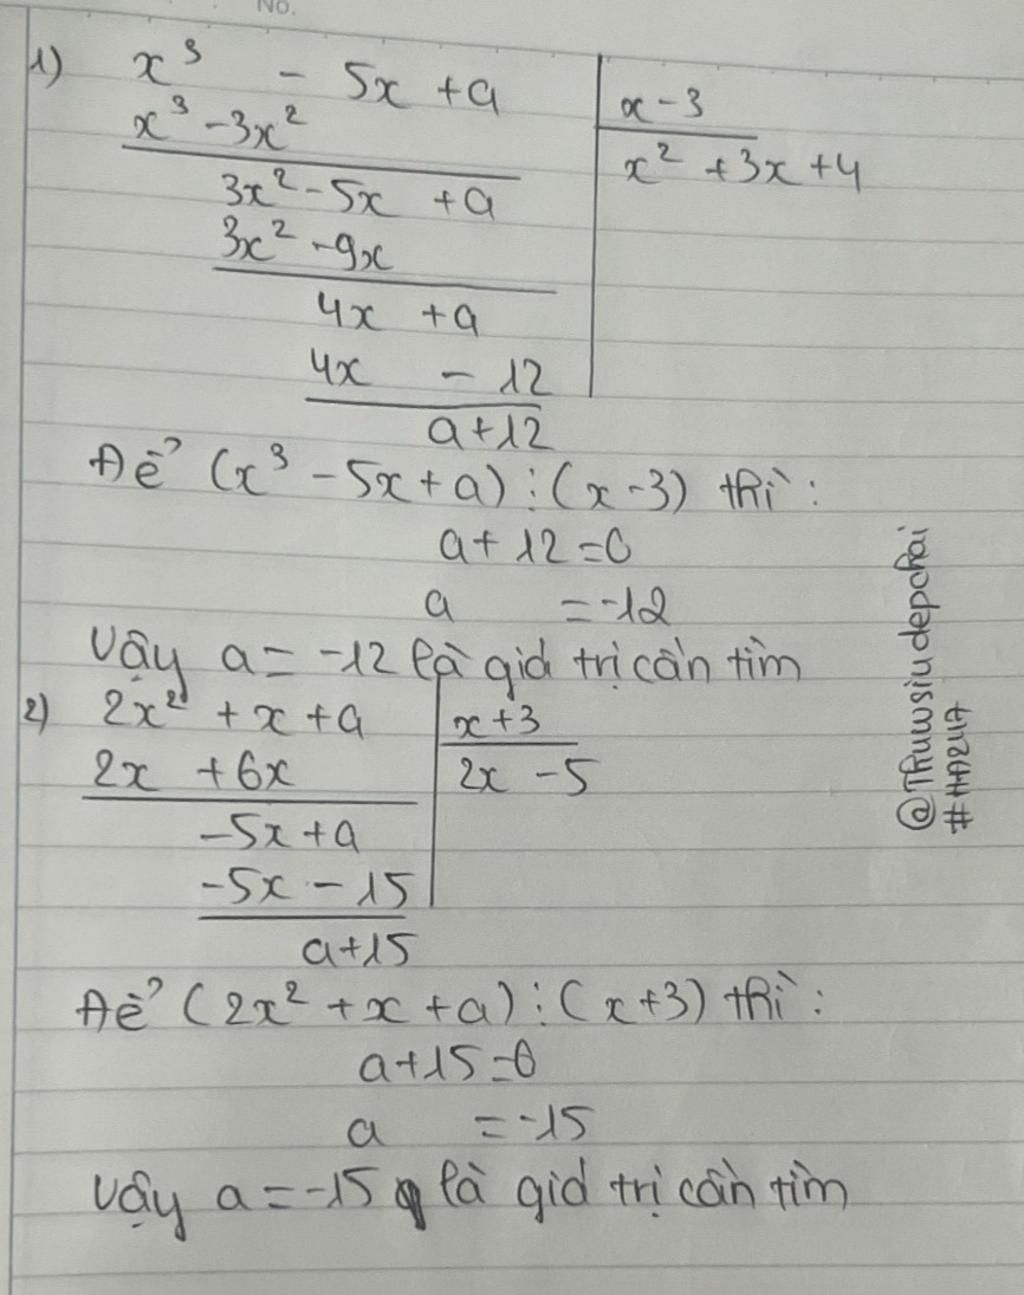 No.
1) x³ - 5x + a | x - 3
x³ - 3x² | x² + 3x + 4
3x² - 5x + a
3x² - 9x
4x + a
4x - 12
a + 12
Để (x³ - 5x + a) ⋮ (x - 3) thì :
a + 12 = 0
a = -12
Vậy a = -12 là giá trị cần tìm
2) 2x² + x + a | x + 3
2x + 6x | 2x - 5
-5x + a
-5x - 15
a + 15
Để (2x² + x + a) ⋮ (x + 3) thì :
a + 15 = 0
a = -15
Vậy a = -15 là giá trị cần tìm
@Thuwsiudepchai
#HA247